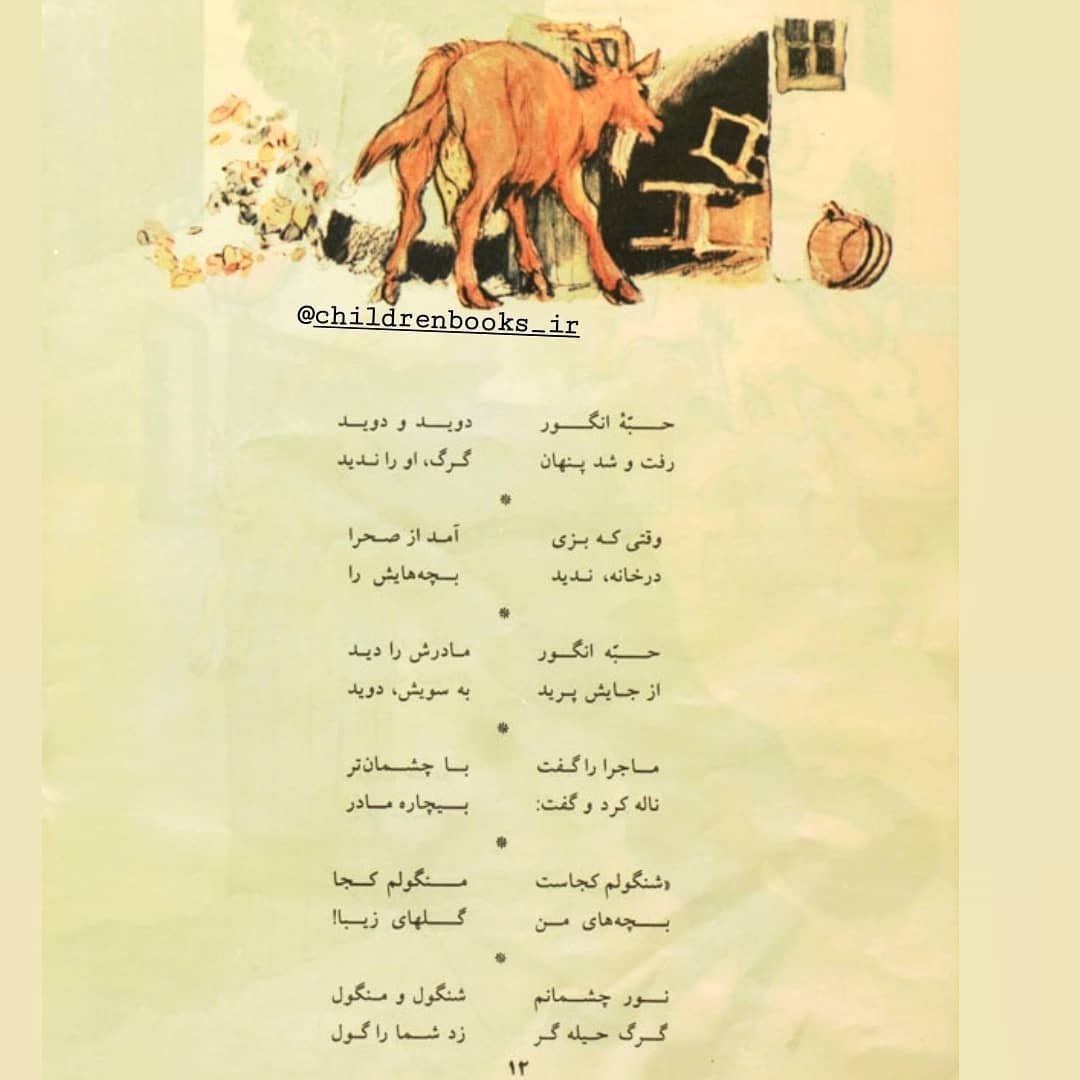 @childrenbooks_ir
حـــبّهٔ انگـــور دویـــد و دویـــد
رفت و شد پـنهان گـرگ، او را نـدید
*
وقتی کـه بـزی آمـد از صـحرا
درخانه، نـدید بـچه‌هایش را
*
حـــبّه انگـــور مـادرش را دیـد
از جـایش پـرید به سویش، دوید
*
مـاجرا را گـفت بـا چشـمان‌تر
ناله کرد و گفت: بـیچاره مـادر
*
«شنگولم کجاست مـنگولم کـجا
بـچه‌های مـن گـلهای زیـبا!
*
نـور چشـمانم شنگول و مـنگول
گـرگ حیله گر زد شـما را گـول
۱۲